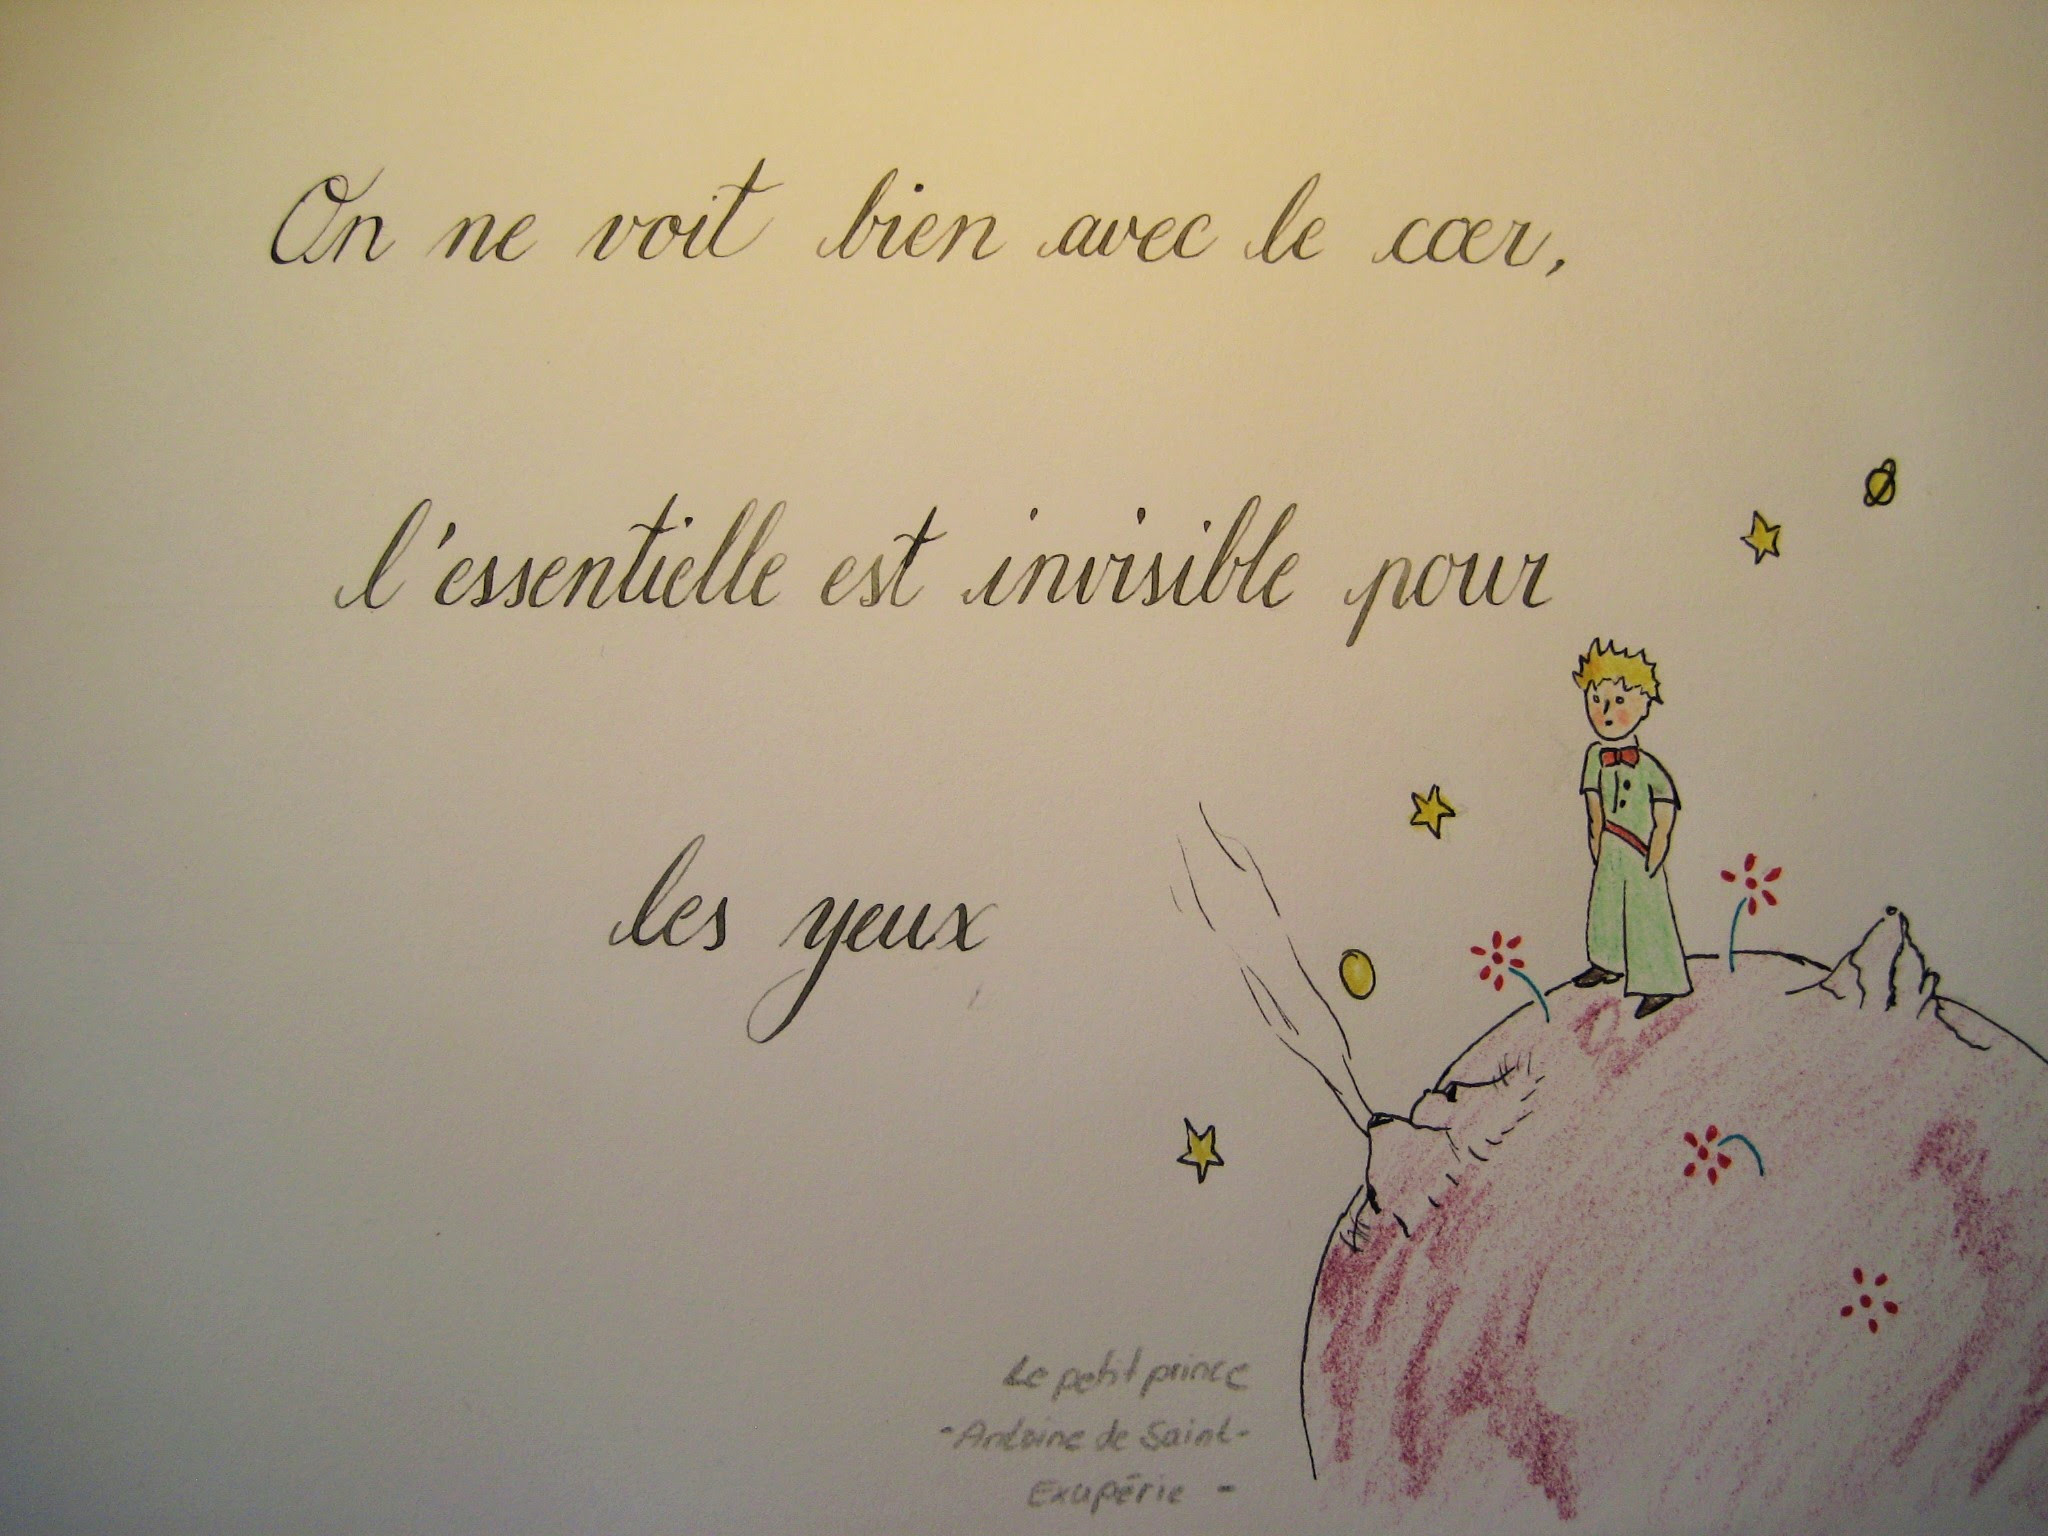 On ne voit bien avec le cœr,
l'essentielle est invisible pour
les yeux
Le petit prince
-Antoine de Saint-
Exupérie -